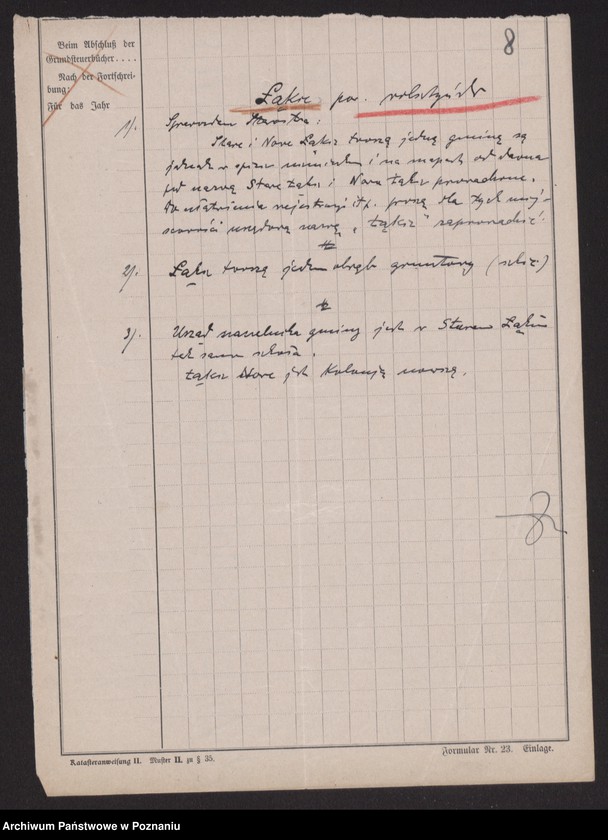 8
Beim Abschluß der
Grundsteuerbücher....
Nach der Fortschrei-
bung:
Für das Jahr
Łąkie pow. wolsztyński
1/. Sprawozdan. Starostwa:
Stare i Nowe Łąkie tworzą jedną gminę są
jednak w i na mapach od dawna
pod nazwą Stare Łąkie i Nowe Łąkie prowadzone.
Do ułatwienia rejestracji itp. proszę dla tych miej-
scowości urzędową nazwę „Łąkie" zaprowadzić.
2/. Łąkie tworzą jeden obręb gruntowy
3/. Urząd naczelnika gminy jest w Starem Łąkiem
tak samo szkoła.
Łąkie jest Kolonją nowszą.
Katasteranweisung II. Muster II. zu § 35.
Formular Nr. 23. Einlage.
Archiwum Państwowe w Poznaniu